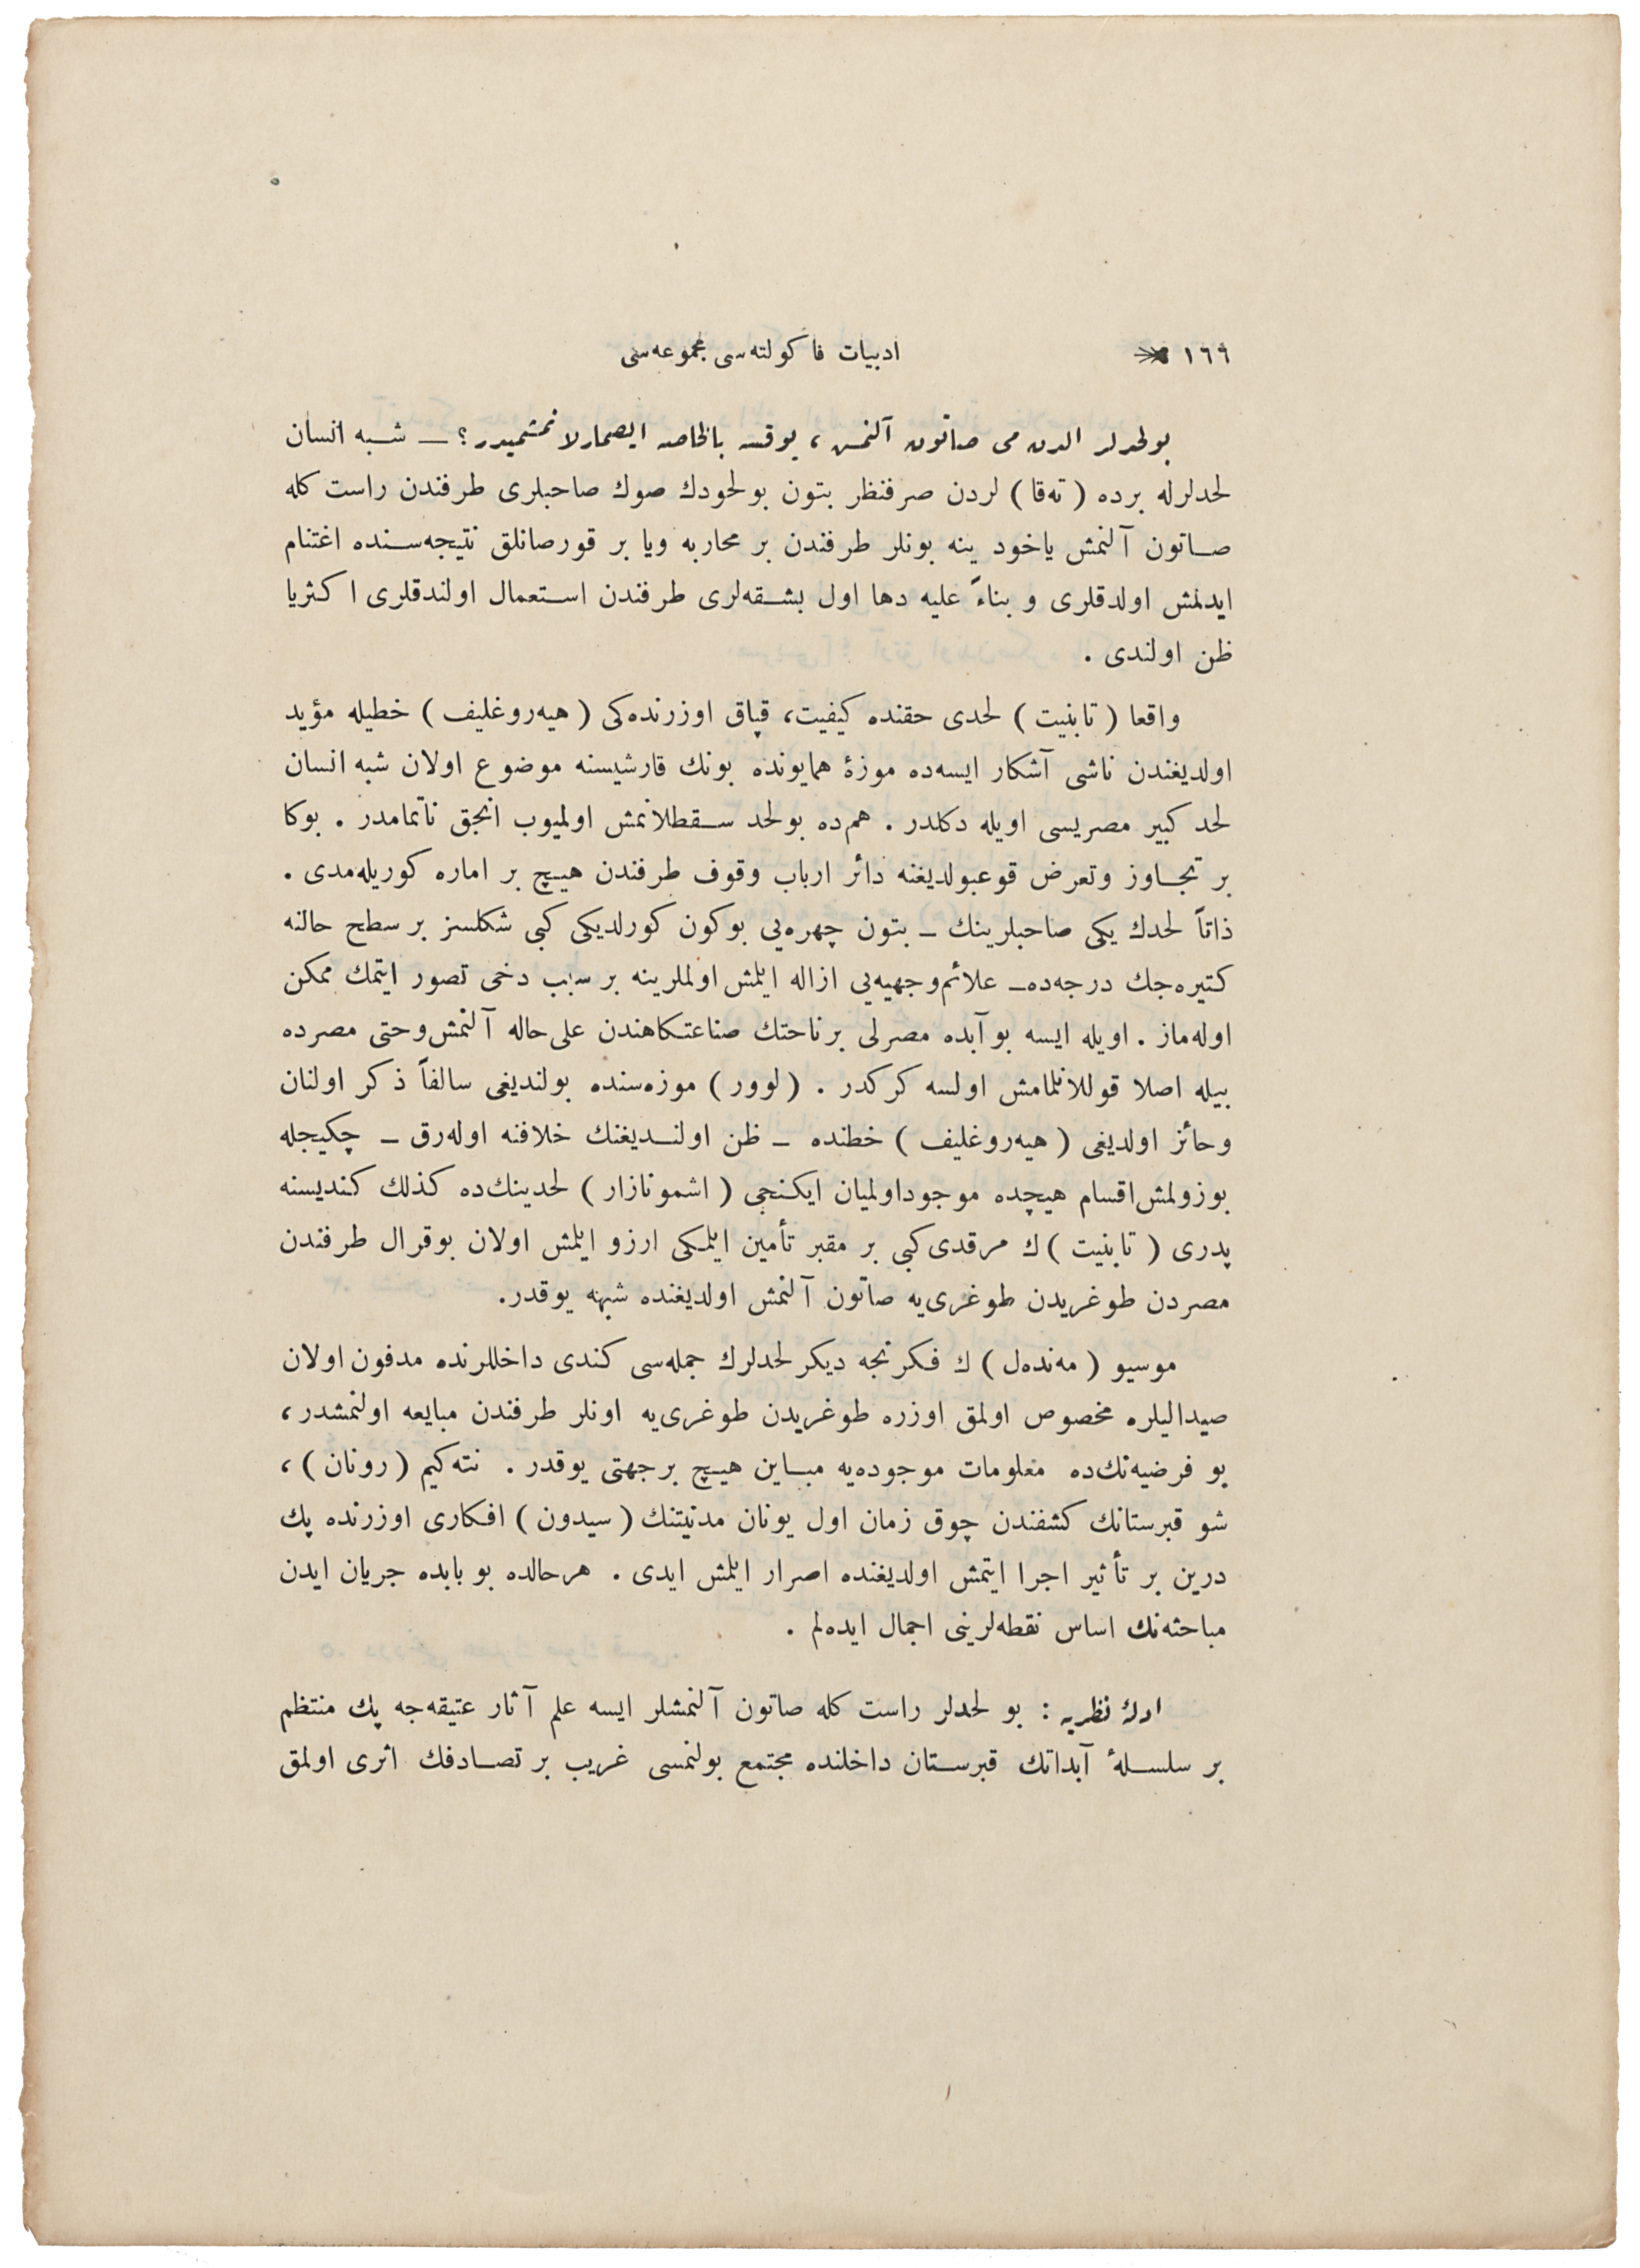 ١٦٦ ادبيات فاكولته‌سی مجموعه‌سی
بولحدلر الدن می صاتون آلنمش ، يوقسه بالخاصه ايصمارلانمشميدر؟ — شبه انسان
لحدلرله برده ( ته‌قا ) لردن صرفنظر بتون بولحودك صوك صاحبلری طرفندن راست كله
صاتون آلنمش ياخود ينه بونلر طرفندن بر محاربه ويا بر قورصانلق نتيجه‌سنده اغتنام
ايدلمش اولدقلری و بناءً عليه دها اول بشقه‌لری طرفندن استعمال اولندقلری اكثريا
ظن اولندی .
واقعا ( تابنيت ) لحدی حقنده كيفيت، قپاق اوزرنده‌كی ( هيه‌روغليف ) خطيله مؤيد
اولديغندن ناشی آشكار ايسه‌ده موزۀ همايونده بونك قارشيسنه موضوع اولان شبه انسان
لحد كبير مصريسی اويله دكلدر . هم‌ده بولحد سقطلانمش اولميوب انجق ناتمامدر . بوكا
بر تجاوز وتعرض قوعبولديغنه دائر ارباب وقوف طرفندن هيچ بر اماره كوريله‌مدی .
ذاتاً لحدك يكی صاحبلرينك ـ بتون چهره‌يی بوكون كورلديكی كبی شكلسز بر سطح حالنه
كتيره‌جك درجه‌ده ـ علائم‌وجهيه‌يی ازاله ايلمش اولملرينه بر سبب دخی تصور ايتمك ممكن
اوله‌ماز . اويله ايسه بو آبده مصرلی بر ناحتك صناعتكاهندن علی حاله آلنمش وحتی مصرده
بيله اصلا قوللانلمامش اولسه كركدر . ( لوور ) موزه‌سنده بولنديغی سالفاً ذكر اولنان
وحائز اولديغی ( هيه‌روغليف ) خطنده ـ ظن اولنديغنك خلافنه اوله‌رق ـ چكيجله
بوزولمش اقسام هيچده موجود اولميان ايكنجی ( اشمونازار ) لحدينك‌ده كذلك كنديسنه
پدری ( تابنيت )ك مرقدی كبی بر مقبر تأمين ايلمكی ارزو ايلمش اولان بوقرال طرفندن
مصردن طوغريدن طوغری‌يه صاتون آلنمش اولديغنده شبهه يوقدر.
موسيو ( مه‌نده‌ل ) ك فكرنجه ديكر لحدلرك جمله‌سی كندی داخللرنده مدفون اولان
صيداليلره مخصوص اولمق اوزره طوغريدن طوغری‌يه اونلر طرفندن مبايعه اولنمشدر،
بو فرضيه‌نك‌ده معلومات موجوده‌يه مباين هيچ بر جهتی يوقدر . نته‌كيم ( رونان ) ،
شو قبرستانك كشفندن چوق زمان اول يونان مدنيتنك ( سيدون ) افكاری اوزرنده پك
درين بر تأثير اجرا ايتمش اولديغنده اصرار ايلمش ايدی . هرحالده بو بابده جريان ايدن
مباحثه‌نك اساس نقطه‌لرينی اجمال ايده‌لم .
نظريه : بو لحدلر راست كله صاتون آلنمشلر ايسه علم آثار عتيقه‌جه پك منتظم
بر سلسلۀ آبداتك قبرستان داخلنده مجتمع بولنمسی غريب بر تصادفك اثری اولمق